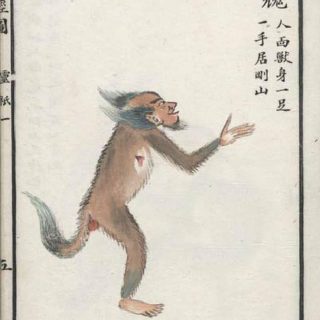 人面獸身一足
一手居剛山
經圖 靈祇一 五